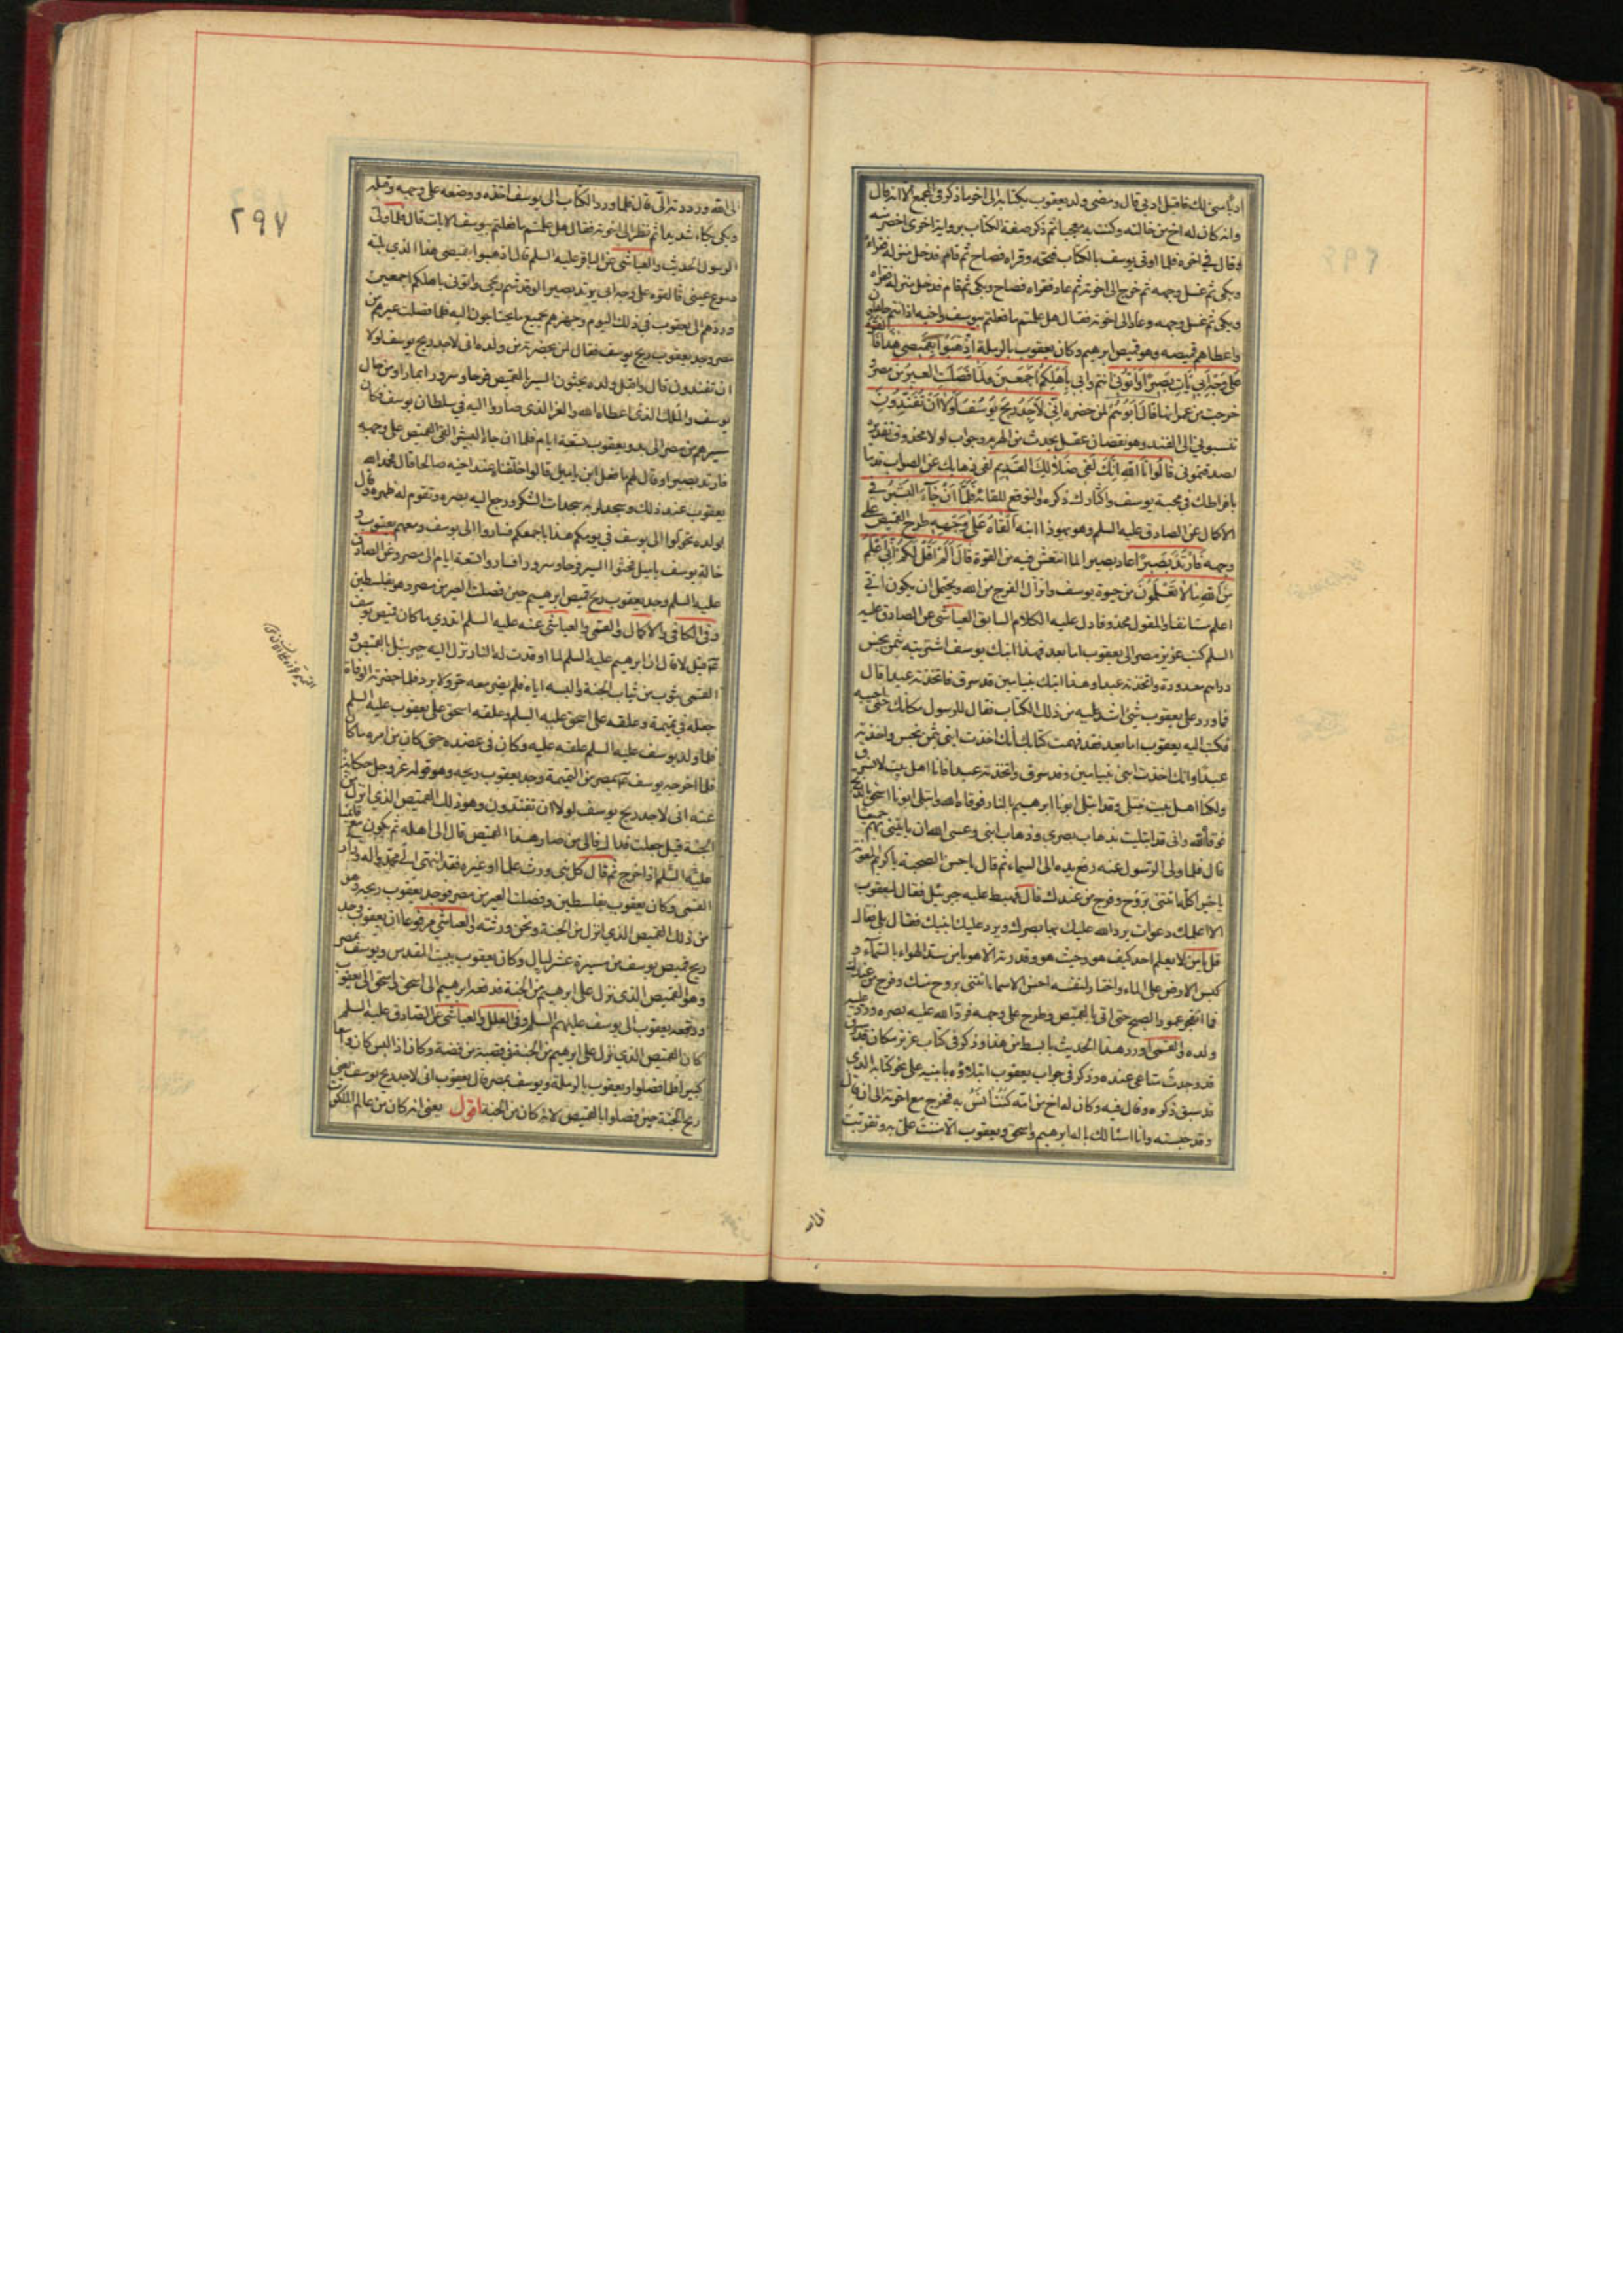 وانه كان له اخ من خالته وكنت به معجبا ثم ذكر صفة الكتاب برواية اخرى اخصر منه
وقال في اخره فلما اوتى يوسف بالكتاب فتحه وقراه فصاح ثم قام فدخل منزله فقراه
وبكى ثم غسل وجهه ثم خرج الى اخوته ثم عاد فقراه فصاح وبكى ثم قام فدخل منزله فقراه
وبكى ثم غسل وجهه وعاد الى اخوته فقال هل علمتم ما فعلتم بيوسف واخيه اذ انتم جاهلون
واعطاهم قميصه وهو قميص ابرهيم وكان يعقوب بالرملة اِذْهَبُوا بِقَمِيصِي هٰذَا فَاَلْقُوهُ
عَلَى وَجْهِ اَبِي يَأْتِ بَصِيرًا وَأْتُونِي انتم وابي بِاَهْلِكُمْ اَجْمَعِينَ وَلَمَّا فَصَلَتِ الْعِيرُ من مصر
خرجت من عمرانها قَالَ اَبُوهُمْ لمن حضره اِنِّي لَأَجِدُ رِيحَ يُوسُفَ لَوْلَا اَنْ تُفَنِّدُونِ
تنسبوني الى الفند وهو نقصان عقل يحدث من الهرم وجواب لولا محذوف تقديره
لصدقتموني قَالُوا تَاللّٰهِ اِنَّكَ لَفِي ضَلَالِكَ الْقَدِيمِ لفي ذهابك عن الصواب قدما
بافراطك في محبة يوسف واكثارك ذكره والتوقع للقائه فَلَمَّا اَنْ جَاءَ الْبَشِيرُ في
الاكمال عن الصادق عليه السلم وهو يهودا ابنه اَلْقَاهُ عَلَى وَجْهِهِ طرح القميص على
وجهه فَارْتَدَّ بَصِيرًا عاد بصيرا لما انتعش فيه من القوة قَالَ اَلَمْ اَقُلْ لَكُمْ اِنِّي اَعْلَمُ
مِنَ اللّٰهِ مَا لَا تَعْلَمُونَ من حيوة يوسف وانزال الفرج من الله ويحتمل ان يكون اني
اعلم مستانفا والمقول محذوفا دل عليه الكلام السابق العياشي عن الصادق عليه
السلم كتب عزيز مصر الى يعقوب اما بعد فهذا ابنك يوسف اشتريته بثمن بخس
دراهم معدودة واتخذته عبدا وهذا ابنك بنيامين قد سرق فاتخذته عبدا قال
فما ورد على يعقوب شئ اشد عليه من ذلك الكتاب فقال للرسول مكانك حتى اجيبه
فكتب اليه يعقوب اما بعد فقد فهمت كتابك انك اخذت ابني بثمن بخس واتخذته
عبدا وانك اخذت ابني بنيامين وقد سرق واتخذته عبدا فانا اهل بيت لا نسرق
ولكنا اهل بيت نبتلى وقد ابتلى ابونا ابرهيم بالنار فوقاه الله وابتلى ابونا اسحق بالذبح
فوقاه الله واني قد ابتليت بذهاب بصري وذهاب ابني وعسى الله ان ياتيني بهم جميعا
قال فلما ولى الرسول عنه رفع يده الى السماء ثم قال يا حسن الصحبة يا كريم المعونة
يا خيرا كله ائتني بروح وفرج من عندك قال فهبط عليه جبرئيل فقال ليعقوب
الا اعلمك دعوات يرد الله عليك بها بصرك ويرد عليك ابنيك فقال بلى فقال
قل يا من لا يعلم احد كيف هو وحيث هو وقدرته الا هو يا من سد الهواء بالسماء و
كبس الارض على الماء واختار لنفسه احسن الاسماء ائتني بروح منك وفرج من عندك
فما انفجر عمود الصبح حتى اتى بالقميص وطرح على وجهه فرد الله عليه بصره ورد عليه
ولده والقمى اورد هذا الحديث بابسط من هذا وذكر في كتاب عزيز مكان قد سرق
قد وجدت متاعي عنده وذكر في جواب يعقوب ابتلاؤه بابنيه على نحو كتابه الذي
قد سبق ذكره وقال فيه وكان له اخ من امه كنت آنس به فخرج مع اخوته الى ان قال
وقد حبسته وانا اسالك باله ابرهيم واسحق ويعقوب الا مننت علي به وتقربت
الى الله
٢٩٧
الى الله ورددته الي قال فلما ورد الكتاب الى يوسف اخذه ووضعه على وجهه وقبله
وبكى بكاء شديدا ثم نظر الى اخوته فقال هل علمتم ما فعلتم بيوسف الايات قال فلما ولى
الرسول الحديث والعياشي عن الباقر عليه السلم قال اذهبوا بقميصي هذا الذي بلته
دموع عيني فالقوه على وجه ابي يرتد بصيرا لو قد شم ريحي واتوني باهلكم اجمعين
وردهم الى يعقوب في ذلك اليوم وجهزهم بجميع ما يحتاجون اليه فلما فصلت عيرهم من
مصر وجد يعقوب ريح يوسف فقال لمن بحضرته من ولده اني لاجد ريح يوسف لولا
ان تفندون قال واقبل ولده يحثون السير بالقميص فرحا وسرورا بما راوا من حال
يوسف والملك الذي اعطاه الله والعز الذي صاروا اليه في سلطان يوسف فكان
مسيرهم من مصر الى بدو يعقوب تسعة ايام فلما ان جاء البشير القى القميص على وجهه
فارتد بصيرا وقال لهم ما فعل ابن ياميل قالوا خلفناه عند اخيه صالحا قال فحمد الله
يعقوب عند ذلك وسجد لربه سجدات الشكر ورجع اليه بصره وتقوم له ظهره وقال
لولده تحولوا الى يوسف في يومكم هذا باجمعكم فساروا الى يوسف ومعهم يعقوب و
خالة يوسف ياميل فحثوا السير فرحا وسرورا فساروا تسعة ايام الى مصر وعن الصادق
عليه السلم وجد يعقوب ريح قميص ابرهيم حين فصلت العير من مصر وهو بفلسطين
وفي الكافي والاكمال والقمى والعياشي عنه عليه السلم اتدري ما كان قميص يوسف
قيل لا قال ان ابرهيم عليه السلم لما اوقدت له النار نزل اليه جبرئيل بالقميص و
القمى بثوب من ثياب الجنة والبسه اياه فلم يضر معه حر ولا برد فلما حضرته الوفاة
جعله في تميمة وعلقه على اسحق عليه السلم وعلقه اسحق على يعقوب عليه السلم
فلما ولد يوسف عليه السلم علقه عليه وكان في عضده حتى كان من امره ما كان
فلما اخرجه يوسف بمصر من التميمة وجد يعقوب ريحه وهو قوله عز وجل حكاية
عنه اني لاجد ريح يوسف لولا ان تفندون وهو ذلك القميص الذي انزل من
الجنة قيل جعلت فداك فالى من صار هذا القميص قال الى اهله ثم يكون مع قائمنا
عليه السلم اذا خرج ثم قال كل نبي ورث علما او غيره فقد انتهى الى محمد واله وزاد
القمى وكان يعقوب بفلسطين وفصلت العير من مصر فوجد يعقوب ريحه وهو
من ذلك القميص الذي انزل من الجنة ونحن ورثته والعياشي مرفوعا ان يعقوب وجد
ريح قميص يوسف من مسيرة عشر ليال وكان يعقوب ببيت المقدس ويوسف بمصر
وهو القميص الذي نزل على ابرهيم من الجنة فدفعه ابرهيم الى اسحق واسحق الى يعقوب
ودفعه يعقوب الى يوسف عليهم السلم وفي العلل والعياشي عن الصادق عليه السلم
كان القميص الذي نزل على ابرهيم من الجنة في قصبة من فضة وكان اذا لبس كان واسعا
كبيرا فلما فصلوا ويعقوب بالرملة ويوسف بمصر قال يعقوب اني لاجد ريح يوسف يعني
ريح الجنة حين فصلوا بالقميص لانه كان من الجنة اقول يعني انه كان من عالم الملكوت